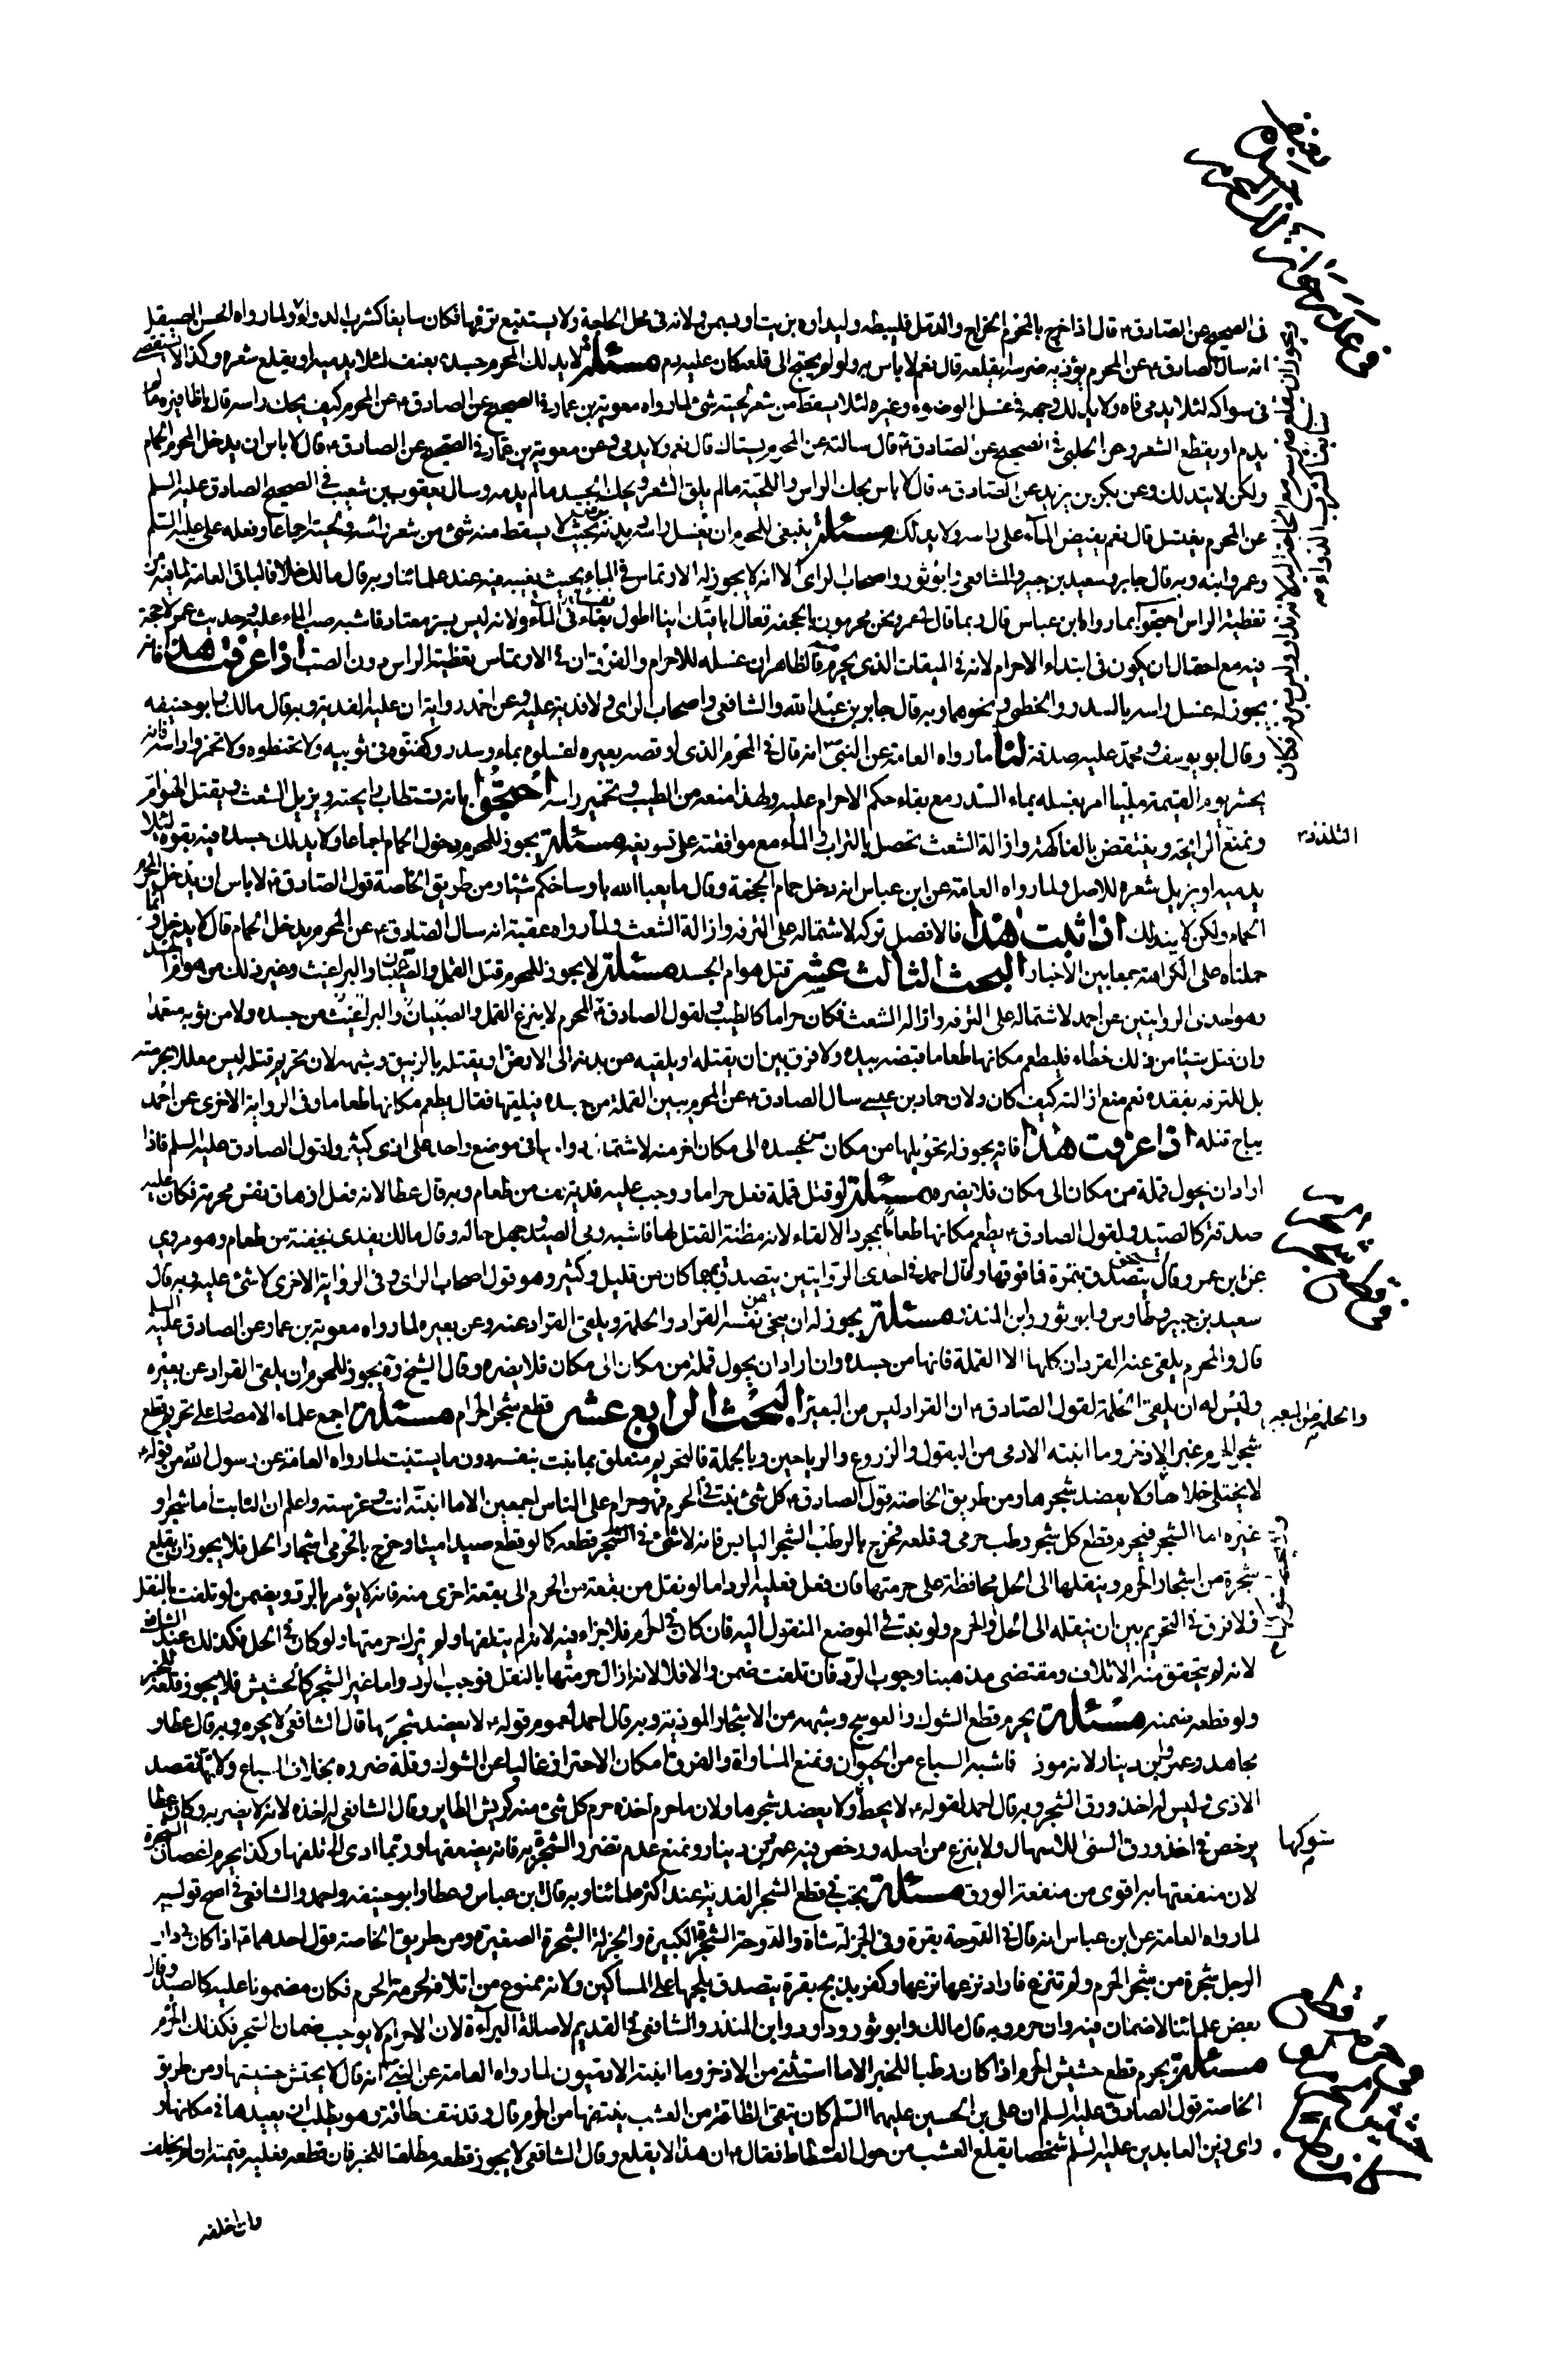 في الصحيح عن الصادق ع قال اذا خرج بالمحرم الخراج والدمل فليبطه وليداوه بزيت او بسمن ولانه في محل الحاجة ولا يستتبع ترفها فكان سايغا كشرب الدواء ولما رواه الحسن الصيقل
انه سال الصادق ع عن المحرم يؤذيه ضرسه ايقلعه قال نعم لا باس به ولو لم يحتج الى قلعه كان عليه دم مسئلة لا يدلك المحرم جسده بعنف لئلا يدميه او يقلع شعره وكذا لا يستقصي
في سواكه لئلا يدمي فاه ولا يدلك وجهه في غسل الوضوء وغيره لئلا يسقط من شعر لحيته شئ لما رواه معوية بن عمار في الصحيح عن الصادق ع عن المحرم كيف يحك راسه قال باظافيره ما لم
يدم او يقطع الشعر وعن الحلبي في الصحيح عن الصادق ع قال سالته عن المحرم يستاك قال نعم ولا يدمي وعن معوية بن عمار في الصحيح عن الصادق ع قال لا باس ان يدخل المحرم الحمام
ولكن لا يتدلك وعن بكر بن يزيد عن الصادق ع قال لا باس بحك الراس واللحية ما لم يلق الشعر وبحك الجسد ما لم يدمه وسال يعقوب بن شعيب في الصحيح الصادق عليه السلم
عن المحرم يغتسل قال نعم يفيض الماء على راسه ولا يدلك مسئلة ينبغي للمحرم ان يغسل راسه وبدنه برفق بحيث لا يسقط منه شئ من شعر راسه ولحيته اجماعا وفعله علي عليه السلم
وعمر وابنه وبه قال جابر وسعيد بن جبير والشافعي وابو ثور واصحاب الراى الا انه لا يجوز له الارتماس في الماء بحيث يغيب فيه عند علمائنا وبه قال مالك خلافا لباقي العامة لما فيه من
تغطية الراس احتجوا بما رواه ابن عباس قال ربما قال لي عمر ونحن محرمون بالجحفة تعال اباقيك اينا اطول نفسا في الماء ولانه ليس بستر معتاد فاشبه صب الماء عليه وحديث عمر لا حجة
فيه مع احتمال ان يكون في ابتداء الاحرام لانه في الميقات الذي يحرم منه فالظاهر ان غسله للاحرام والفرق ان في الارتماس تغطية الراس دون الصب اذا عرفت هذا فانه
يجوز له غسل راسه بالسدر والخطمي ونحوهما وبه قال جابر بن عبد الله والشافعي واصحاب الراى ولا فدية عليه وعن احمد رواية ان عليه الفدية وبه قال مالك وابو حنيفه
وقال ابو يوسف ومحمد عليه صدقة لنا ما رواه العامة عن النبي ص انه قال في المحرم الذي وقصه بعيره اغسلوه بماء وسدر وكفنوه في ثوبيه ولا تحنطوه ولا تخمروا راسه فانه
يحشر يوم القيمة ملبيا امر بغسله بماء السدر مع بقاء حكم الاحرام عليه ولهذا منعه من الطيب وتخمير راسه احتجوا بانه تستطاب رايحته ويزيل الشعث ويقتل الهوام
ونمنع الرايحة وينتقض بالفاكهة وازالة الشعث تحصل بالتراب والماء مع موافقته على تسويغه مسئلة يجوز للمحرم دخول الحمام اجماعا ولا يدلك جسده فيه بقوة لئلا
يدميه او يزيل شعره للاصل ولما رواه العامة عن ابن عباس انه دخل حمام الجحفة وقال ما يعبا الله باوساخكم شيئا ومن طريق الخاصة قول الصادق ع لا باس ان يدخل المحرم
الحمام ولكن لا يتدلك اذا ثبت هذا فالافضل تركه لاشتماله على الترفه وازالة الشعث ولما رواه عقبة انه سال الصادق ع عن المحرم يدخل الحمام قال لا يدخل وانما
حملناه على الكراهة جمعا بين الاخبار البحث الثالث عشر قتل هوام الجسد مسئلة لا يجوز للمحرم قتل القمل والصئبان والبراغيث وغير ذلك من هوام الجسد
وهو احدى الروايتين عن احمد لاشتماله على الترفه وازالة الشعث فكان حراما كالطيب ولقول الصادق ع المحرم لا ينزع القمل والصئبان والبراغيث من جسده ولا من ثوبه متعمدا
وان قتل شيئا من ذلك خطاء فليطعم مكانها طعاما قبضة بيده ولا فرق بين ان يقتله او يلقيه من بدنه الى الارض او يقتله بالزيبق وشبهه لان تحريم قتله ليس معللا بحرمته
بل للترفه بفقده نعم منع ازالته كيف كان ولان حماد بن عيسى سال الصادق ع عن المحرم يبين القملة من جسده فيلقيها فقال يطعم مكانها طعاما وفي الرواية الاخرى عن احمد
يباح قتله اذا عرفت هذا فانه يجوز له تحويلها من مكان من جسده الى مكان اخر منه لاشتمال في موضع واحد على اذى كثير ولقول الصادق عليه السلم فاذا
اراد ان يحول قملة من مكان الى مكان فلا يضره مسئلة لو قتل قملة فعل حراما ووجب عليه فدية من طعام وبه قال عطا لانه فعل ازهاق نفس محرمة فكان عليه
صدقة كالصيد ولقول الصادق ع يطعم مكانها طعاما بمجرد الالقاء لانه مظنة القتل لها فاشبه رمي الصيد وجهل حاله وقال مالك يفدى بحفنة من طعام وهو مروي
عن ابن عمر وقال اسحق يتصدق بتمرة فما فوقها وقال احمد في احدى الروايتين يتصدق بمهما كان من قليل وكثير وهو قول اصحاب الراى وفي الرواية الاخرى لا شئ عليه وبه قال
سعيد بن جبير وطاوس وابو ثور وابن المنذر مسئلة يجوز له ان ينحي من نفسه القراد والحلمة ويلقى القراد عنه وعن بعيره لما رواه معوية بن عمار عن الصادق عليه السلم
قال والمحرم يلقي عنه القردان كلها الا القملة فانها من جسده وان اراد ان يحول قملة من مكان الى مكان فلا يضره وقال الشيخ ره يجوز للمحرم ان يلقى القراد عن بعيره
وليس له ان يلقى الحلمة لقول الصادق ع ان القراد ليس من البعير البحث الرابع عشر قطع شجر الحرام مسئلة اجمع علماء الامصار على تحريم قطع
شجر الحرم غير الاذخر وما انبته الادمي من البقول والزروع والرياحين وبالجملة فالتحريم متعلق بما نبت بنفسه دون ما يستنبت لما رواه العامة عن رسول الله ص من قوله ع
لا يختلى خلاها ولا يعضد شجرها ومن طريق الخاصة قول الصادق ع كل شئ نبت في الحرم فهو حرام على الناس اجمعين الا ما انبته انت وغرسته واعلم ان النابت اما شجر او
غيره اما الشجر فيحرم قطع كل شجر رطب حرمي وقلعه فخرج بالرطب الشجر اليابس فانه لا شئ في قطعه كما لو قطع صيدا ميتا وخرج بالحرمي اشجار الحل فلا يجوز ان يقلع
شجرة من اشجار الحرم وينقلها الى الحل محافظة على حرمتها فان فعل فعليه الرد اما لو نقل من بقعة من الحرم الى بقعة اخرى منه فانه لا يؤمر بالرد ويضمن لو تلفت بالنقل
ولا فرق في التحريم بين ان ينقله الى الحل والحرم ولو نبتت في الموضع المنقول اليه فان كان في الحرم فلا جزاء فيه لانه لم يتلفها ولم يترك حرمتها ولو كان في الحل فكذلك عند الشافعي
لانه لم يتحقق منه الاتلاف ومقتضى مذهبنا وجوب الرد فان تلفت ضمن والا فلا لانه ازال حرمتها بالنقل فوجب الرد واما غير الشجر كالحشيش فلا يجوز قلعه للخبر
ولو قطعه ضمنه مسئلة يحرم قطع الشوك والعوسج وشبهه من الاشجار الموذية وبه قال احمد لعموم قوله ع لا يعضد شجرها قال الشافعي لا يحرم وبه قال عطا و
مجاهد وعمرو بن دينار لانه موذ فاشبه السباع من الحيوان ونمنع المساواة والفرق امكان الاحتراز غالبا عن الشوك وقلة ضرره بخلاف السباع ولانها تقصد
الاذى وليس له اخذ ورق الشجر وبه قال احمد لقوله ع لا يخبط ولا يعضد شجرها ولان ما حرم اخذه حرم كل شئ منه كريش الطاير وقال الشافعي له اخذه لانه لا يضر به وكان عطا
يرخص في اخذ ورق السنى للاسهال ولا ينزع من اصله ورخص فيه عمرو بن دينار ونمنع عدم تضرر الشجرة به فانه يضعفها وربما ادى الى تلفها وكذا يحرم اغصان الشجرة
لان منفعتها به اقوى من منفعة الورق مسئلة تجب في قطع الشجر الفدية عند اكثر علمائنا وبه قال ابن عباس وعطا وابو حنيفه واحمد والشافعي في اصح قوليه
لما رواه العامة عن ابن عباس انه قال في الدوحة بقرة وفي الجزلة شاة والدوحة الشجرة الكبيرة والجزلة الشجرة الصغيرة ومن طريق الخاصة قول احدهما ع اذا كان في دار
الرجل شجرة من شجر الحرم ولم تنزع فاراد نزعها نزعها وكفر بذبح بقرة يتصدق بلحمها على المساكين ولانه ممنوع من اتلافه لحرمة الحرم فكان مضمونا عليه كالصيد وقال
بعض علمائنا لا ضمان فيه وان حرم وبه قال مالك وابو ثور وداود وابن المنذر والشافعي في القديم لاصالة البراءة لان الاحرام لا يوجب ضمان الشجر فكذلك الحرم
مسئلة يحرم قطع حشيش الحرم اذا كان رطبا للخبر الا ما استثني من الاذخر وما انبته الادميون لما رواه العامة عن النبي ص انه قال لا يحتش حشيشها ومن طريق
الخاصة قول الصادق عليه السلم ان علي بن الحسين عليهما السلم كان يتقى الطاقة من العشب ينتفها من الحرم قال وقد نتف طاقة وهو يطلب ان يعيدها في مكانها و
راى زين العابدين عليه السلم شخصا يقلع العشب من حول الفسطاط فقال ع ان هذا لا يقلع وقال الشافعي لا يجوز قطعه مطلقا للخبر فان قطعه فعليه قيمته ان لم يخلف
وان اخلف
التلذذ
والحلمة من البعير
شوكها